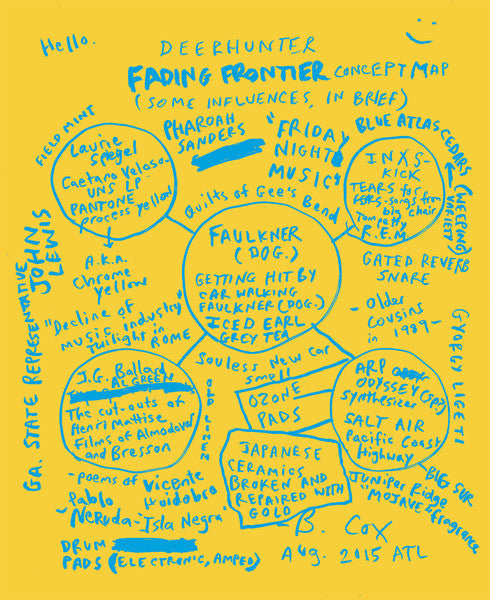 Hello.
DEERHUNTER
FADING FRONTIER CONCEPT MAP
(SOME INFLUENCES, IN BRIEF)
FIELD MINT
Laurie
Spiegel
Caetano Veloso-
UNS LP
PANTONE
process yellow
PHAROAH
SANDERS
"FRIDAY
NIGHT
MUSIC"
BLUE ATLAS CEDARS
(WEEPING)
VARIETY
INXS-
KICK
TEARS for
FEARS-songs from
big chair
Tom Petty
R.E.M.
Quilts of Gee's Bend
GA. STATE REPRESENTATIVE
JOHN
LEWIS
A.K.A.
Chrome
yellow
"Decline of
music industry"
Twilight in ROME
FAULKNER
(DOG.)
GETTING HIT BY
CAR WALKING
FAULKNER (DOG.)
ICED EARL
GREY TEA
GATED REVERB
SNARE
- Older
cousins
in
1989-
GYORGY LIGETI
Souless New Car
Smell
J.G. Ballard
AL GREEN
The cut-outs of
Henri Mattise
Films of Almodovar
and Bresson
OZONE
PADS
ARP
ODYSSEY (SPP.)
Synthesizer
SALT AIR
Pacific Coast
Highway
JAPANESE
CERAMICS
BROKEN AND
REPAIRED WITH
GOLD
- poems of Vicente
Huidobro
- Pablo
Neruda- "Isla Negra"
BIG SUR
Juniper Ridge
"MOJAVE" fragrance
DRUM
PADS (ELECTRONIC, AMPED)
-B. Cox
Aug. 2015 ATL